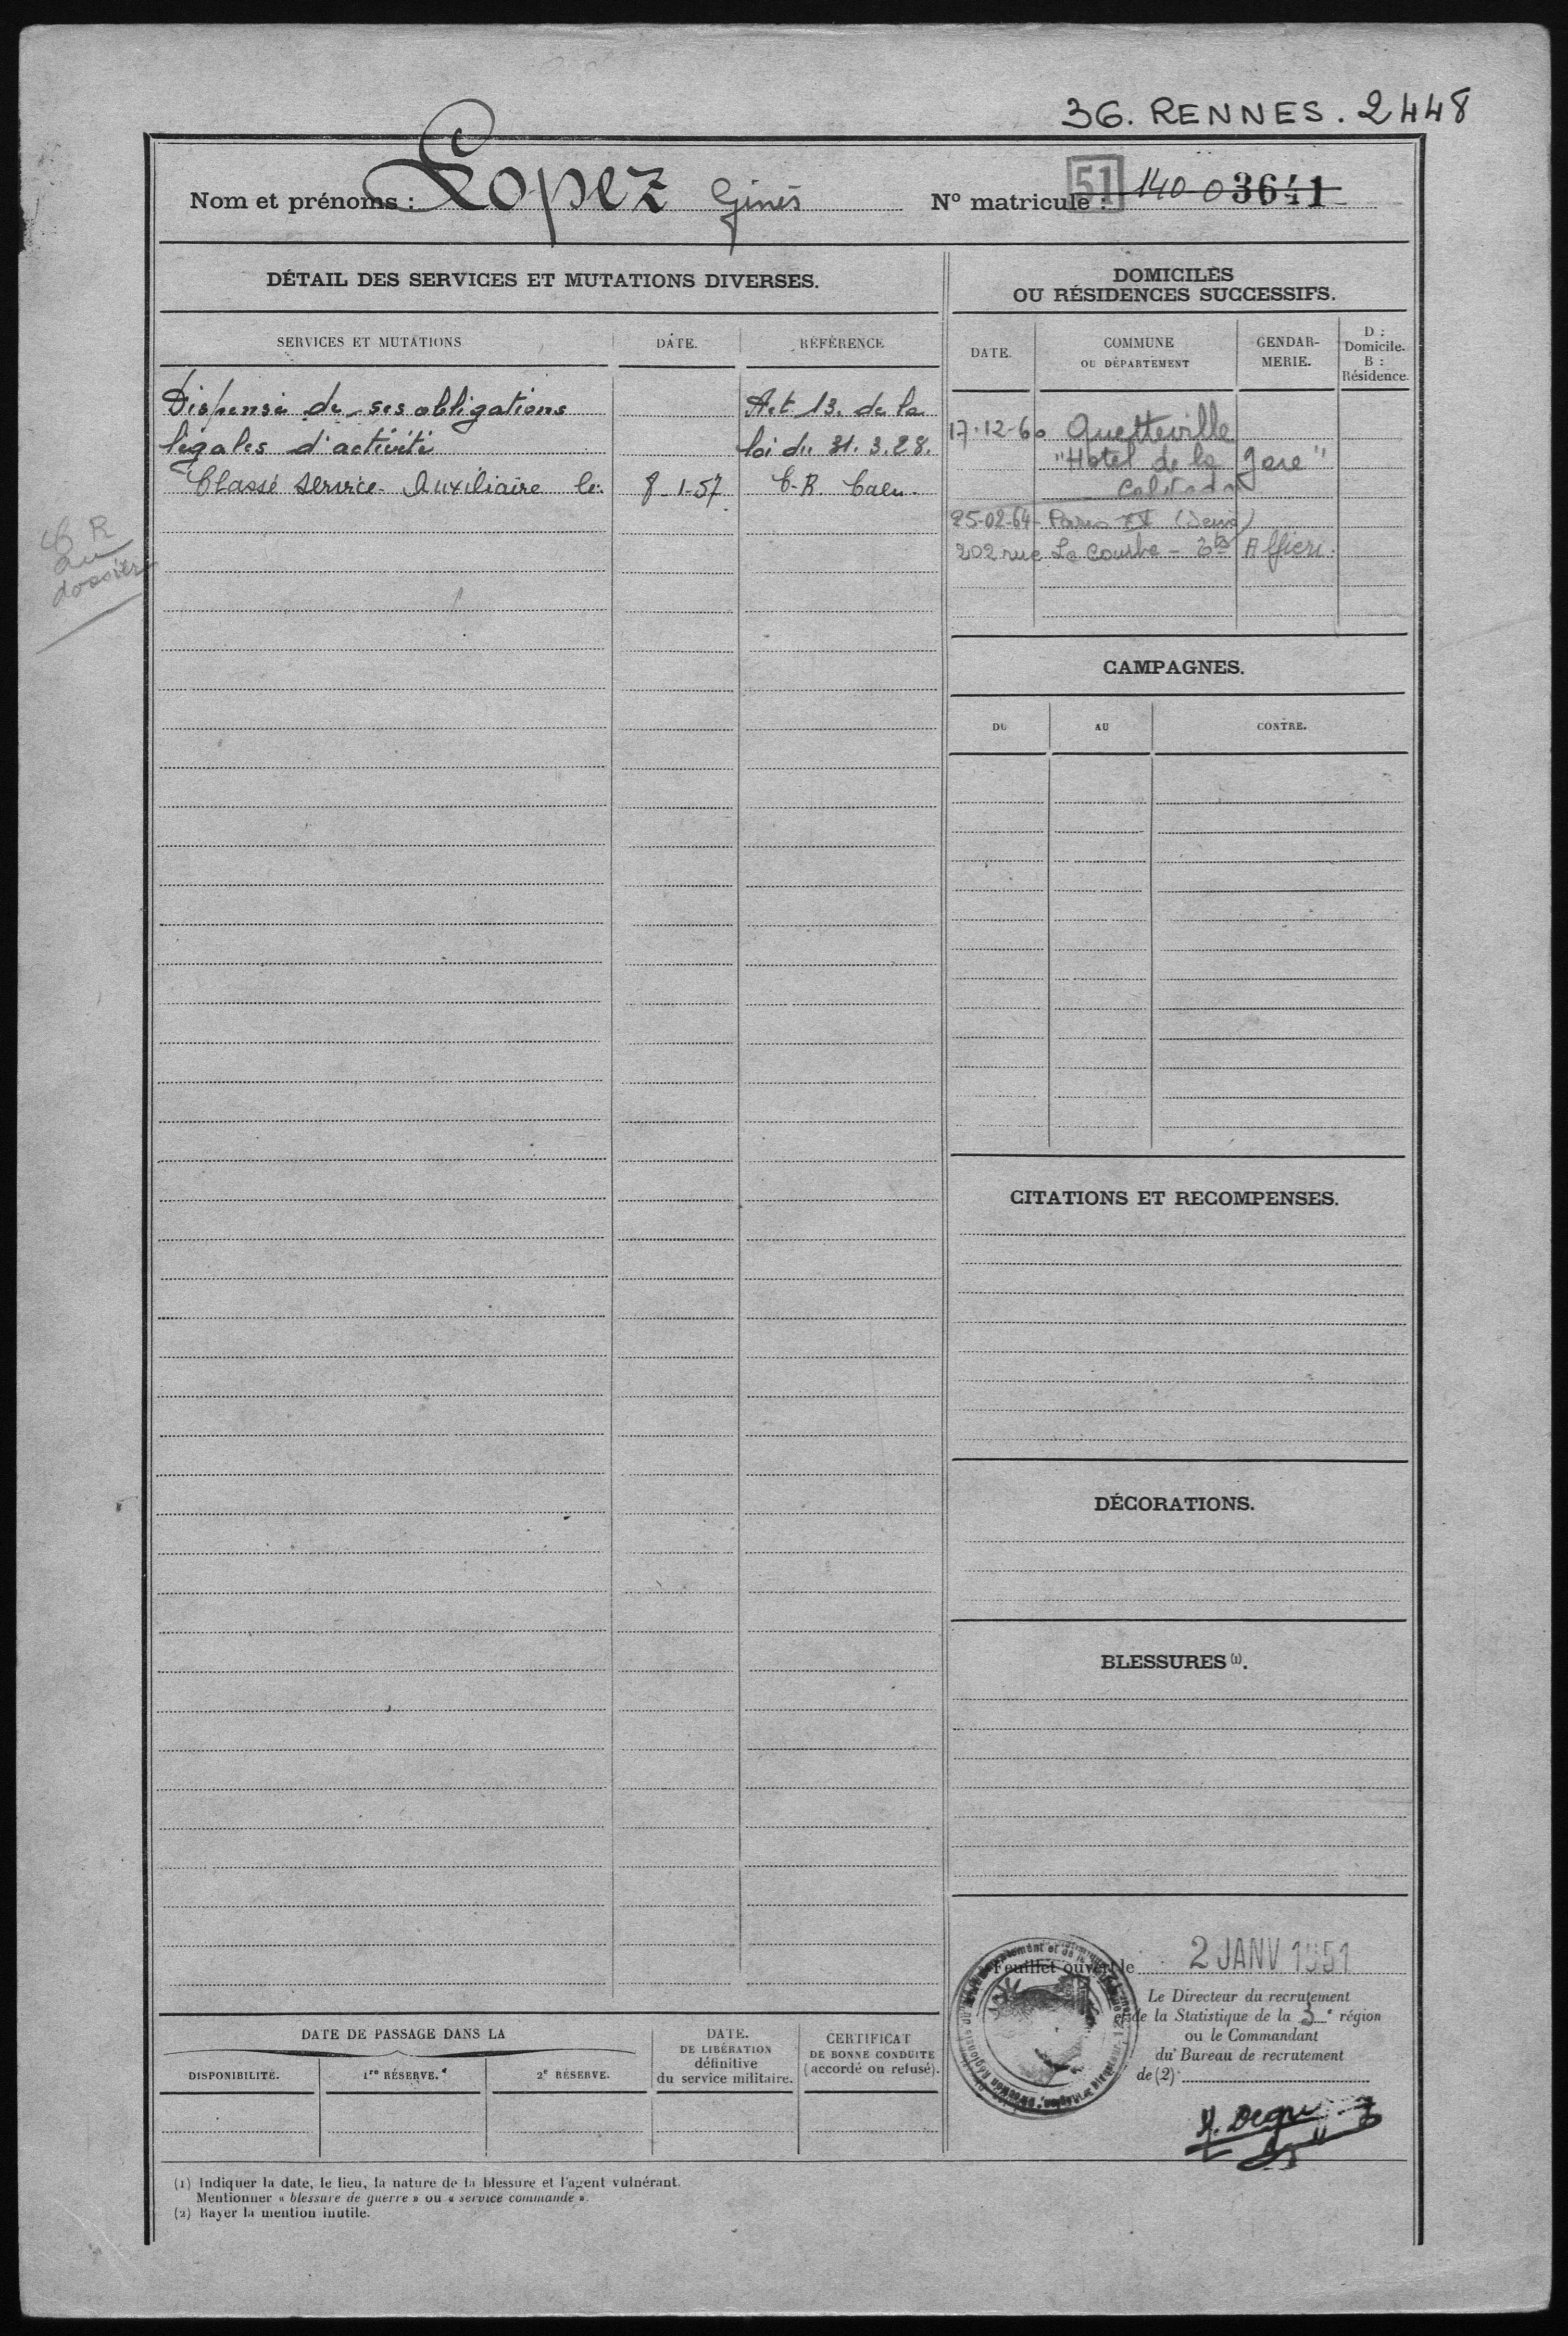 36. RENNES. 2448
Nom et prénoms : Lopez Ginés
N° matricule : 51 140 0 3641
DÉTAIL DES SERVICES ET MUTATIONS DIVERSES.
SERVICES ET MUTATIONS DATE. RÉFÉRENCE
Dispensé de ses obligations Art. 13. de la
légales d'activité loi du 31.3.28.
Classé Service Auxiliaire le 8-1-57 C.R. Caen.
C R
au
dossier
DOMICILES
OU RÉSIDENCES SUCCESSIFS.
DATE.
COMMUNE
OU DÉPARTEMENT
GENDAR-
MERIE.
D :
Domicile.
B :
Résidence.
17-12-60 Quetteville
"Hotel de la gare"
Calvados
25-02-64 Paris (Seine)
202 rue Le Courbe - Ets Alfieri.
CAMPAGNES.
DU AU CONTRE.
CITATIONS ET RECOMPENSES.
DÉCORATIONS.
BLESSURES (1).
Feuillet ouvert le 2 JANV 1951
Le Directeur du recrutement
et de la Statistique de la 3e région
ou le Commandant
du Bureau de recrutement
de (2)
DATE DE PASSAGE DANS LA
DISPONIBILITÉ. 1re RÉSERVE. 2e RÉSERVE.
DATE.
DE LIBÉRATION
définitive
du service militaire.
CERTIFICAT
DE BONNE CONDUITE
(accordé ou refusé).
(1) Indiquer la date, le lieu, la nature de la blessure et l'agent vulnérant.
Mentionner « blessure de guerre » ou « service commandé ».
(2) Rayer la mention inutile.